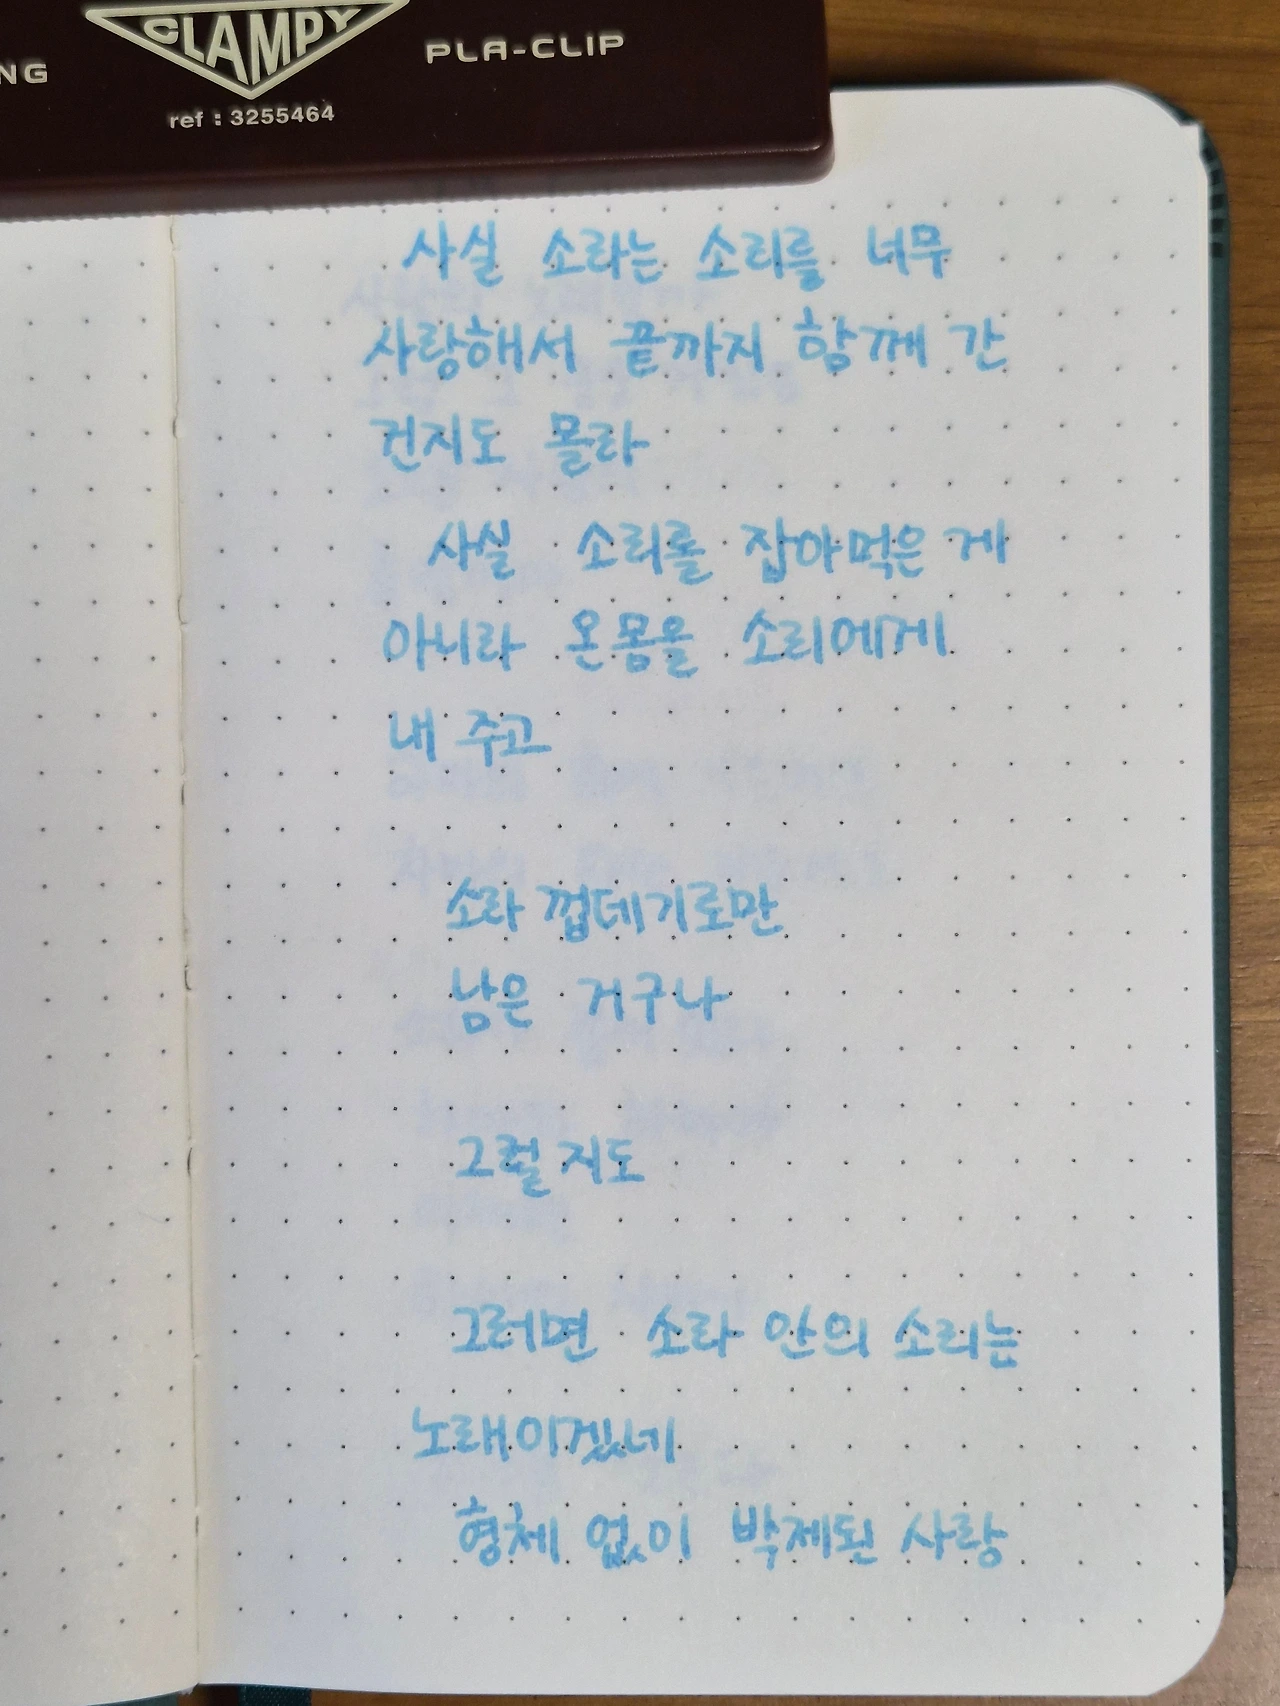 NG
CLAMPY
PLA-CLIP
ref : 3255464
사실 소라는 소리를 너무
사랑해서 끝까지 함께 간
건지도 몰라
사실 소리를 잡아먹은 게
아니라 온몸을 소리에게
내 주고
소라 껍데기로만
남은 거구나
그럴지도
그러면 소라 안의 소리는
노래이겠네
형체 없이 박제된 사랑